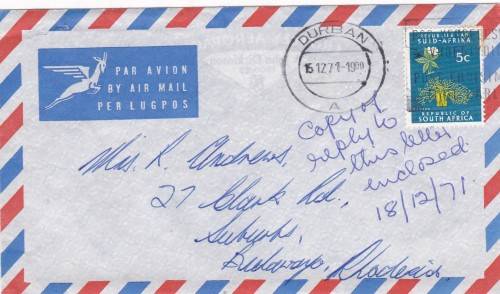 PAR AVION
BY AIR MAIL
PER LUGPOS
DURBAN
15.12.71-19
A
REPUBLIEK VAN
SUID-AFRIKA
5c
REPUBLIC OF
SOUTH AFRICA
Copy of
reply to
this letter
enclosed.
18/12/71.
Mrs. R. Andrews,
27 Clark Rd.,
Suburbs,
Bulawayo,
Rhodesia.